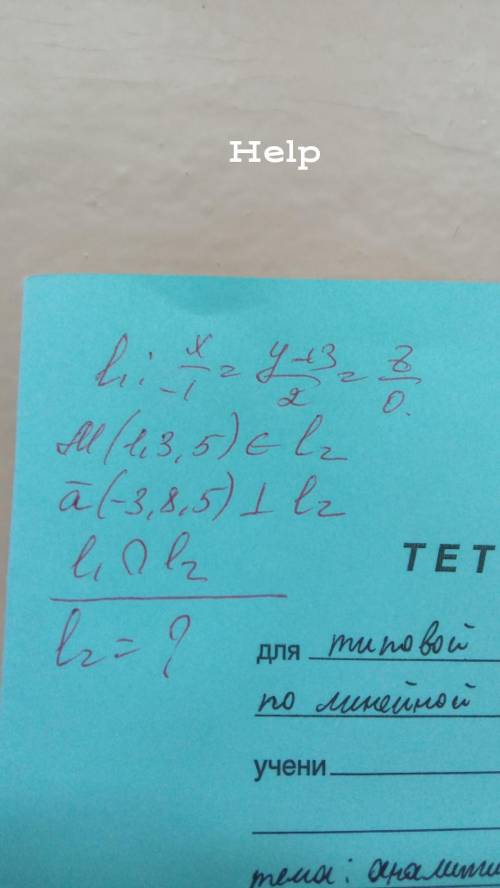 Help
l₁: x/-1 = y+3/2 = z/0.
M(1,3,5) ∈ l₂
ā(-3,8,5) ⊥ l₂
l₁ ∩ l₂
l₂ = ?
ТЕТ
для типовой
по линейной
учени
тема: аналити